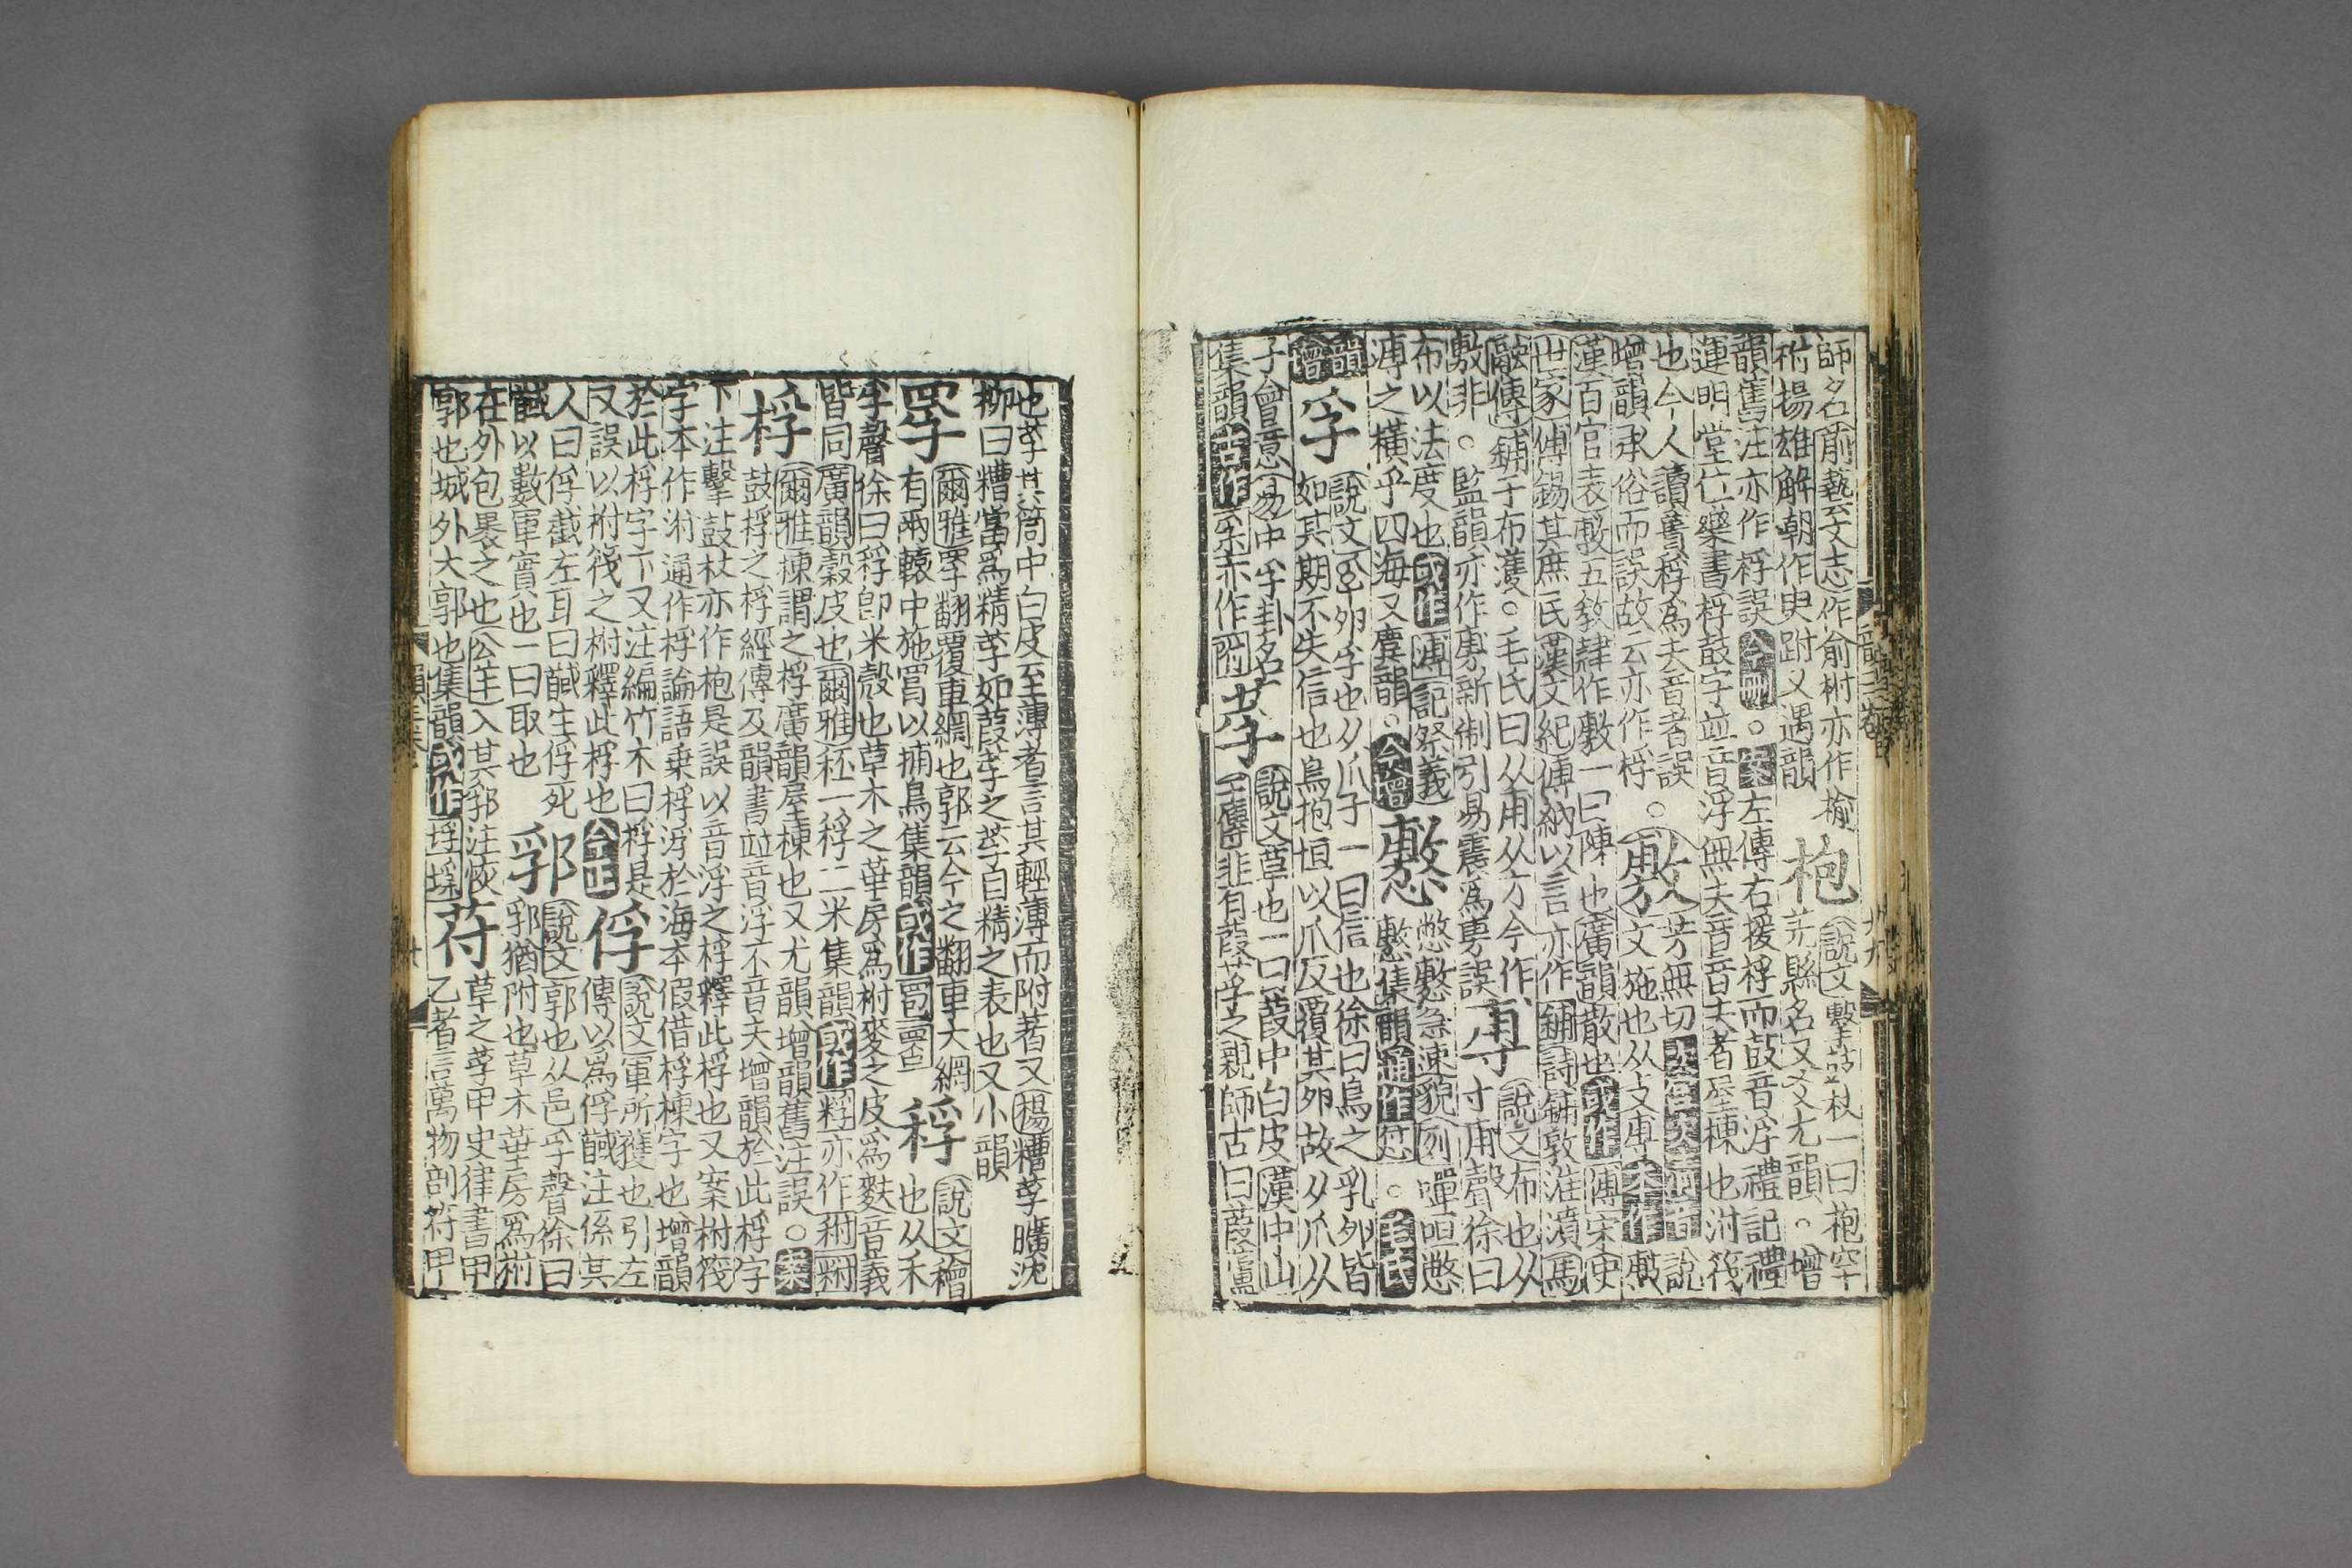 師名前藝文志作俞柎亦作榆
柎揚雄解嘲作臾跗又遇韻
枹
說文擊鼓杖一曰枹罕
羌縣名又尤韻。增
韻舊注亦作桴誤今刪。案左傳右援桴而鼓音浮禮記禮
運明堂位樂書桴鼓字並音浮無夫音音夫者屋棟也泭筏
也今人讀舊桴爲去音者誤。
增韻承俗而誤故云亦作桴
敷
芳無切次宮次清音說
文施也从攴尃本作
漢百官表敷五敎肄作敷一曰陳也廣韻散也或作傅宋史
世家傅錫其庶民漢文紀傅納以言亦作鋪詩鋪敦淮濆馬
融傳鋪于布濩。毛氏曰从甫从方今作
敷非。監韻亦作旉新制引易震爲旉誤
尃
說文布也从
寸甫聲徐曰
布以法度也或作溥記祭義
溥之橫乎四海又虞韻。今增
懯
憋懯急速貌列嘽咺憋
懯集韻通作怤。毛氏
韻
增
孚
說文卵孚也从爪子一曰信也徐曰鳥之乳卵皆
如其期不失信也鳥抱恒以爪反覆其卵故从爪从
子會意易中孚卦名
集韻古作𤓽亦作附
莩
說文草也一曰葭中白皮漢中山
王傳非有葭莩之親師古曰葭蘆
也莩其筒中白皮至薄者言其輕薄而附著又楊糟莩曠沈
柳曰糟當爲精莩如葭莩之莩白精之表也又小韻
罦
爾雅罦翻覆車網也郭云今之翻車大網
有兩轅中施罥以捕鳥集韻或作罬罿
稃
說文䆁
也从禾
孚聲徐曰稃卽米殼也草木之華房爲柎麥之皮爲麩音義
皆同廣韻穀皮也爾雅秠一稃二米集韻或作𥹷亦作䄮䊇
桴
爾雅棟謂之桴廣韻屋棟也又尤韻增韻舊注誤。案
鼓桴之桴經傳及韻書並音浮不音夫增韻於此桴字
下注擊鼓杖亦作枹是誤以音浮之桴釋此桴也又案柎筏
字本作泭通作桴論語乗桴浮於海本假借桴棟字也增韻
於此桴字下又注編竹木曰桴是
又誤以柎筏之柎釋此桴也今正
俘
說文軍所獲也引左
傳以爲俘馘注係其
人曰俘截左耳曰馘生俘死
馘以數軍實也一曰取也
郛
說文郭也从邑孚聲徐曰
郛猶柎也草木華房爲柎
在外包裹之也公羊入其郛注恢
郭也城外大郭也集韻或作垺㙅
苻
草之莩甲史律書甲
乙者言萬物剖苻甲